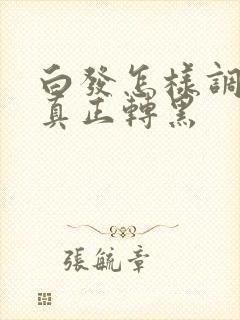 白發怎樣調
真正轉黑
張毓章